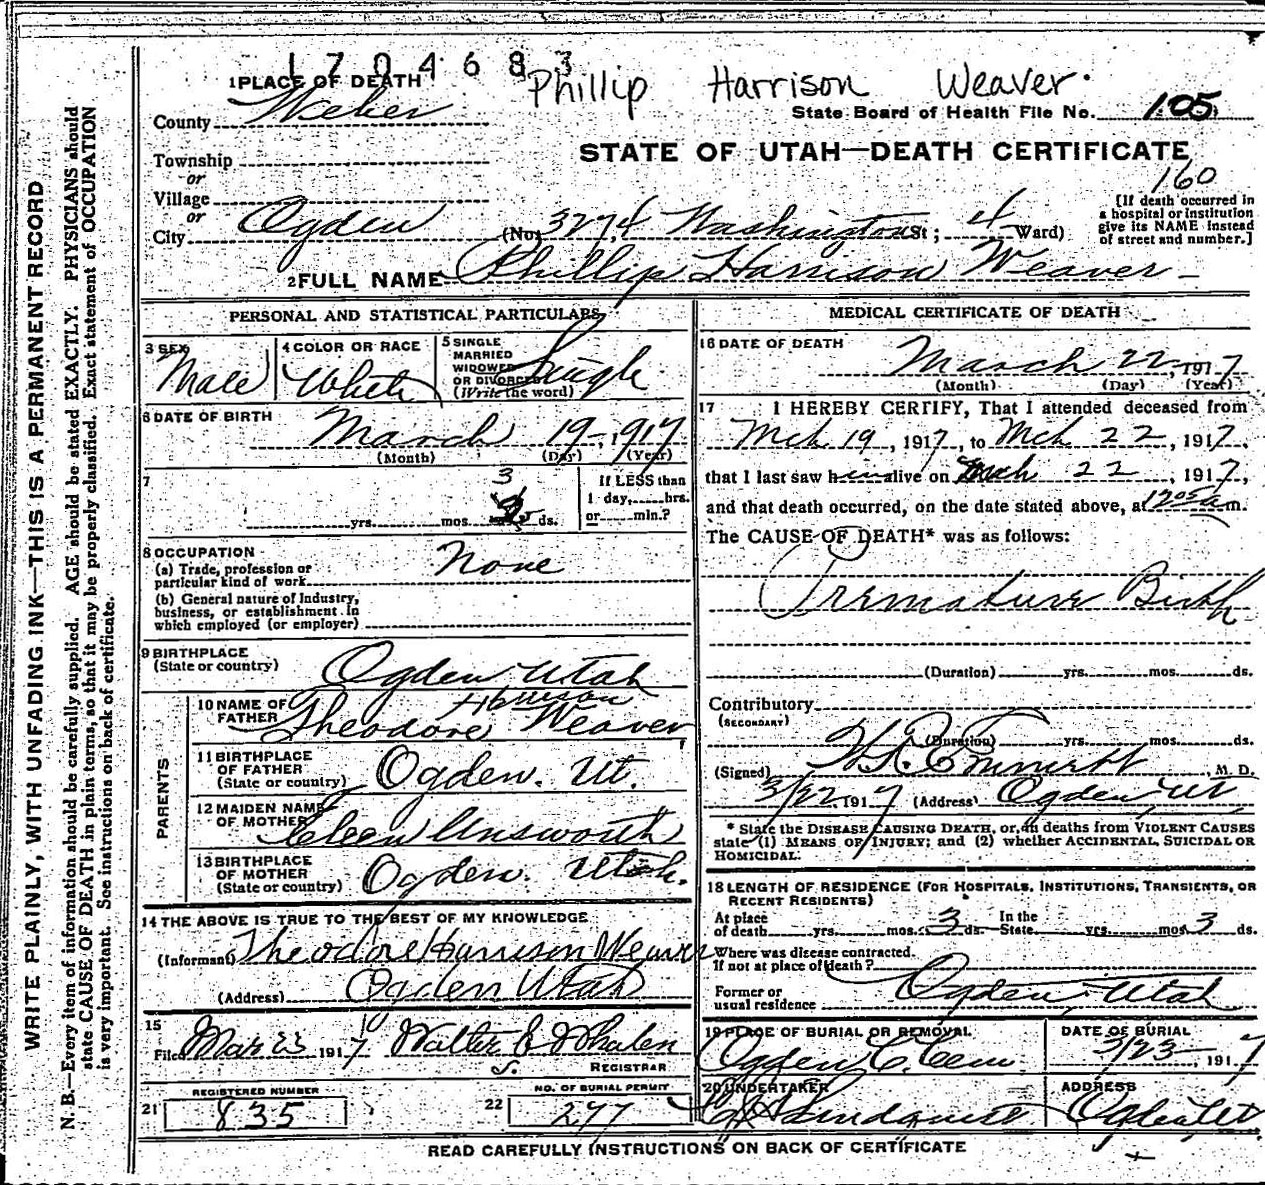 1704683
Phillip Harrison Weaver.
1 PLACE OF DEATH
County Weber
State Board of Health File No. 105
STATE OF UTAH—DEATH CERTIFICATE
160
Township
or
Village
or
City Ogden (No. 3274 Washington St; 4 Ward)
[If death occurred in
a hospital or institution
give its NAME instead
of street and number.]
2 FULL NAME Phillip Harrison Weaver
PERSONAL AND STATISTICAL PARTICULARS
3 SEX Male
4 COLOR OR RACE White
5 SINGLE
MARRIED
WIDOWED
OR DIVORCED
(Write the word) Single
6 DATE OF BIRTH
March 19 - 1917
(Month) (Day) (Year)
7
3
yrs. mos. ds.
If LESS than
1 day, hrs.
or min.?
8 OCCUPATION
(a) Trade, profession or
particular kind of work None
(b) General nature of Industry,
business, or establishment in
which employed (or employer)
9 BIRTHPLACE
(State or country) Ogden Utah
PARENTS
10 NAME OF
FATHER Theodore Harrison Weaver
11 BIRTHPLACE
OF FATHER
(State or country) Ogden. Ut.
12 MAIDEN NAME
OF MOTHER Unsworth
13 BIRTHPLACE
OF MOTHER
(State or country) Ogden. Utah.
14 THE ABOVE IS TRUE TO THE BEST OF MY KNOWLEDGE
(Informant) Theodore Harrison Weaver
(Address) Ogden Utah
15
Filed Mar 23 1917 Walter J Whalen
REGISTRAR
REGISTERED NUMBER
21 835
NO. OF BURIAL PERMIT
22 277
MEDICAL CERTIFICATE OF DEATH
16 DATE OF DEATH
March 22, 1917
(Month) (Day) (Year)
17 I HEREBY CERTIFY, That I attended deceased from
Mch 19, 1917, to Mch 22, 1917,
that I last saw him alive on Mch 22, 1917,
and that death occurred, on the date stated above, at 1205 a m.
The CAUSE OF DEATH* was as follows:
Premature Birth
(Duration) yrs. mos. ds.
Contributory
(SECONDARY)
(Duration) yrs. mos. ds.
(Signed) Emmett, M. D.
3/22 1917 (Address) Ogden, Ut
* State the DISEASE CAUSING DEATH, or, in deaths from VIOLENT CAUSES
state (1) MEANS OF INJURY; and (2) whether ACCIDENTAL, SUICIDAL OR
HOMICIDAL.
18 LENGTH OF RESIDENCE (FOR HOSPITALS, INSTITUTIONS, TRANSIENTS, OR
RECENT RESIDENTS)
At place
of death yrs. mos. 3 ds. In the
State yrs. mos. 3 ds.
Where was disease contracted.
If not at place of death?
Former or
usual residence Ogden, Utah
19 PLACE OF BURIAL OR REMOVAL
Ogden C. Cem.
DATE OF BURIAL
3/23 1917
20 UNDERTAKER
ADDRESS
Ogden Ut.
READ CAREFULLY INSTRUCTIONS ON BACK OF CERTIFICATE
WRITE PLAINLY, WITH UNFADING INK—THIS IS A PERMANENT RECORD
N. B.—Every item of information should be carefully supplied. AGE should be stated EXACTLY. PHYSICIANS should
state CAUSE OF DEATH in plain terms, so that it may be properly classified. Exact statement of OCCUPATION
is very important. See instructions on back of certificate.